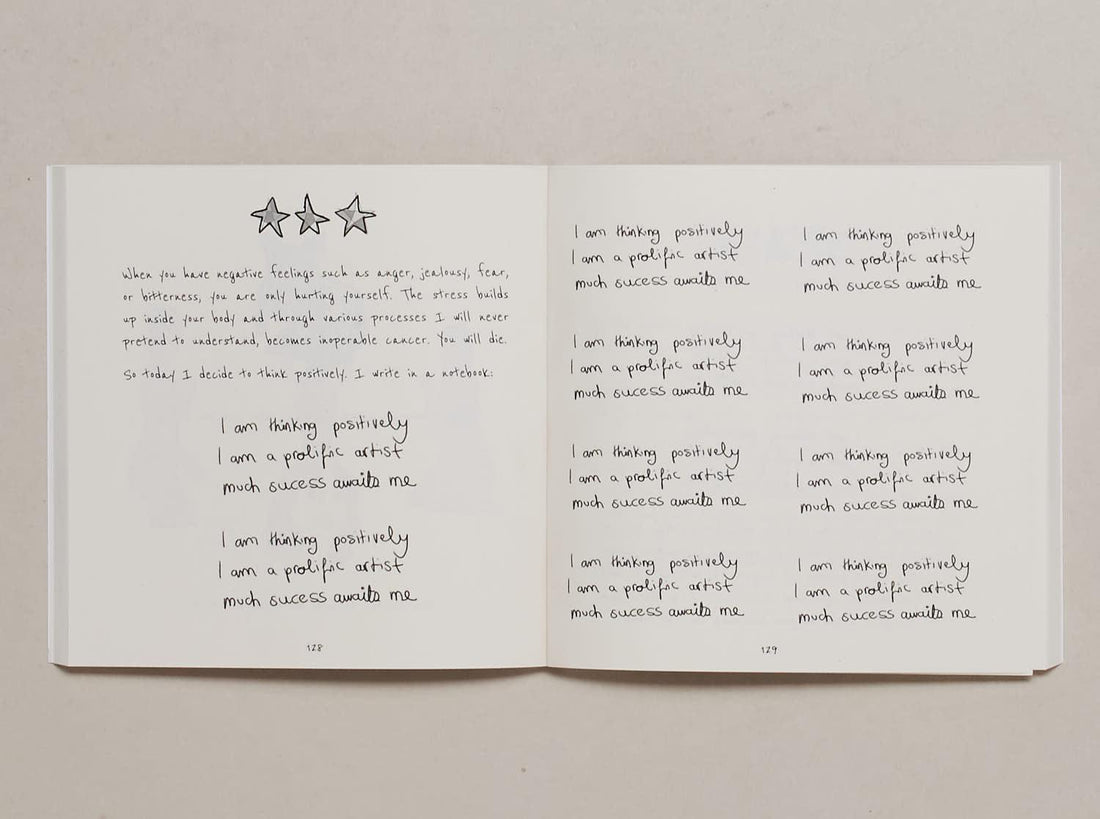 When you have negative feelings such as anger, jealousy, fear,
or bitterness, you are only hurting yourself. The stress builds
up inside your body and through various processes I will never
pretend to understand, becomes inoperable cancer. You will die.
So today I decide to think positively. I write in a notebook:
I am thinking positively
I am a prolific artist
much sucess awaits me
I am thinking positively
I am a prolific artist
much sucess awaits me
128
I am thinking positively
I am a prolific artist
much sucess awaits me
I am thinking positively
I am a prolific artist
much sucess awaits me
I am thinking positively
I am a prolific artist
much sucess awaits me
I am thinking positively
I am a prolific artist
much sucess awaits me
I am thinking positively
I am a prolific artist
much sucess awaits me
I am thinking positively
I am a prolific artist
much sucess awaits me
I am thinking positively
I am a prolific artist
much sucess awaits me
I am thinking positively
I am a prolific artist
much sucess awaits me
129